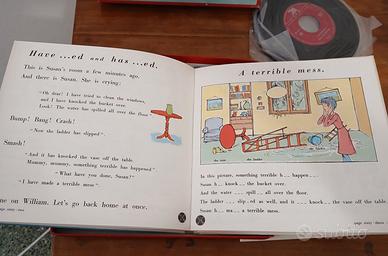 Have ...ed and has ...ed.
This is Susan's room a few minutes ago.
And there is Susan. She is crying:
"Oh dear! I have tried to clean the windows,
and I have knocked the bucket over.
Look! The water has spilled all over the floor
Bump! Bang! Crash!
"Now the ladder has slipped".
Smash!
"And it has knocked the vase off the table.
Mammy, mommy, something terrible has happened"
"What have you done, Susan?"
"I have made a terrible mess".
me on William. Let's go back home at once.
page sixty-two
A terrible mess.
the vase
the ladder
the bucket
In this picture, something terrible h... happen....
Susan h... knock... the bucket over.
And the water .... spill... all over the floor.
The ladder .... slip..ed as well, and it .... knock... the vase off the table.
Susan h... ma... a terrible mess.
page sixty-three
subito